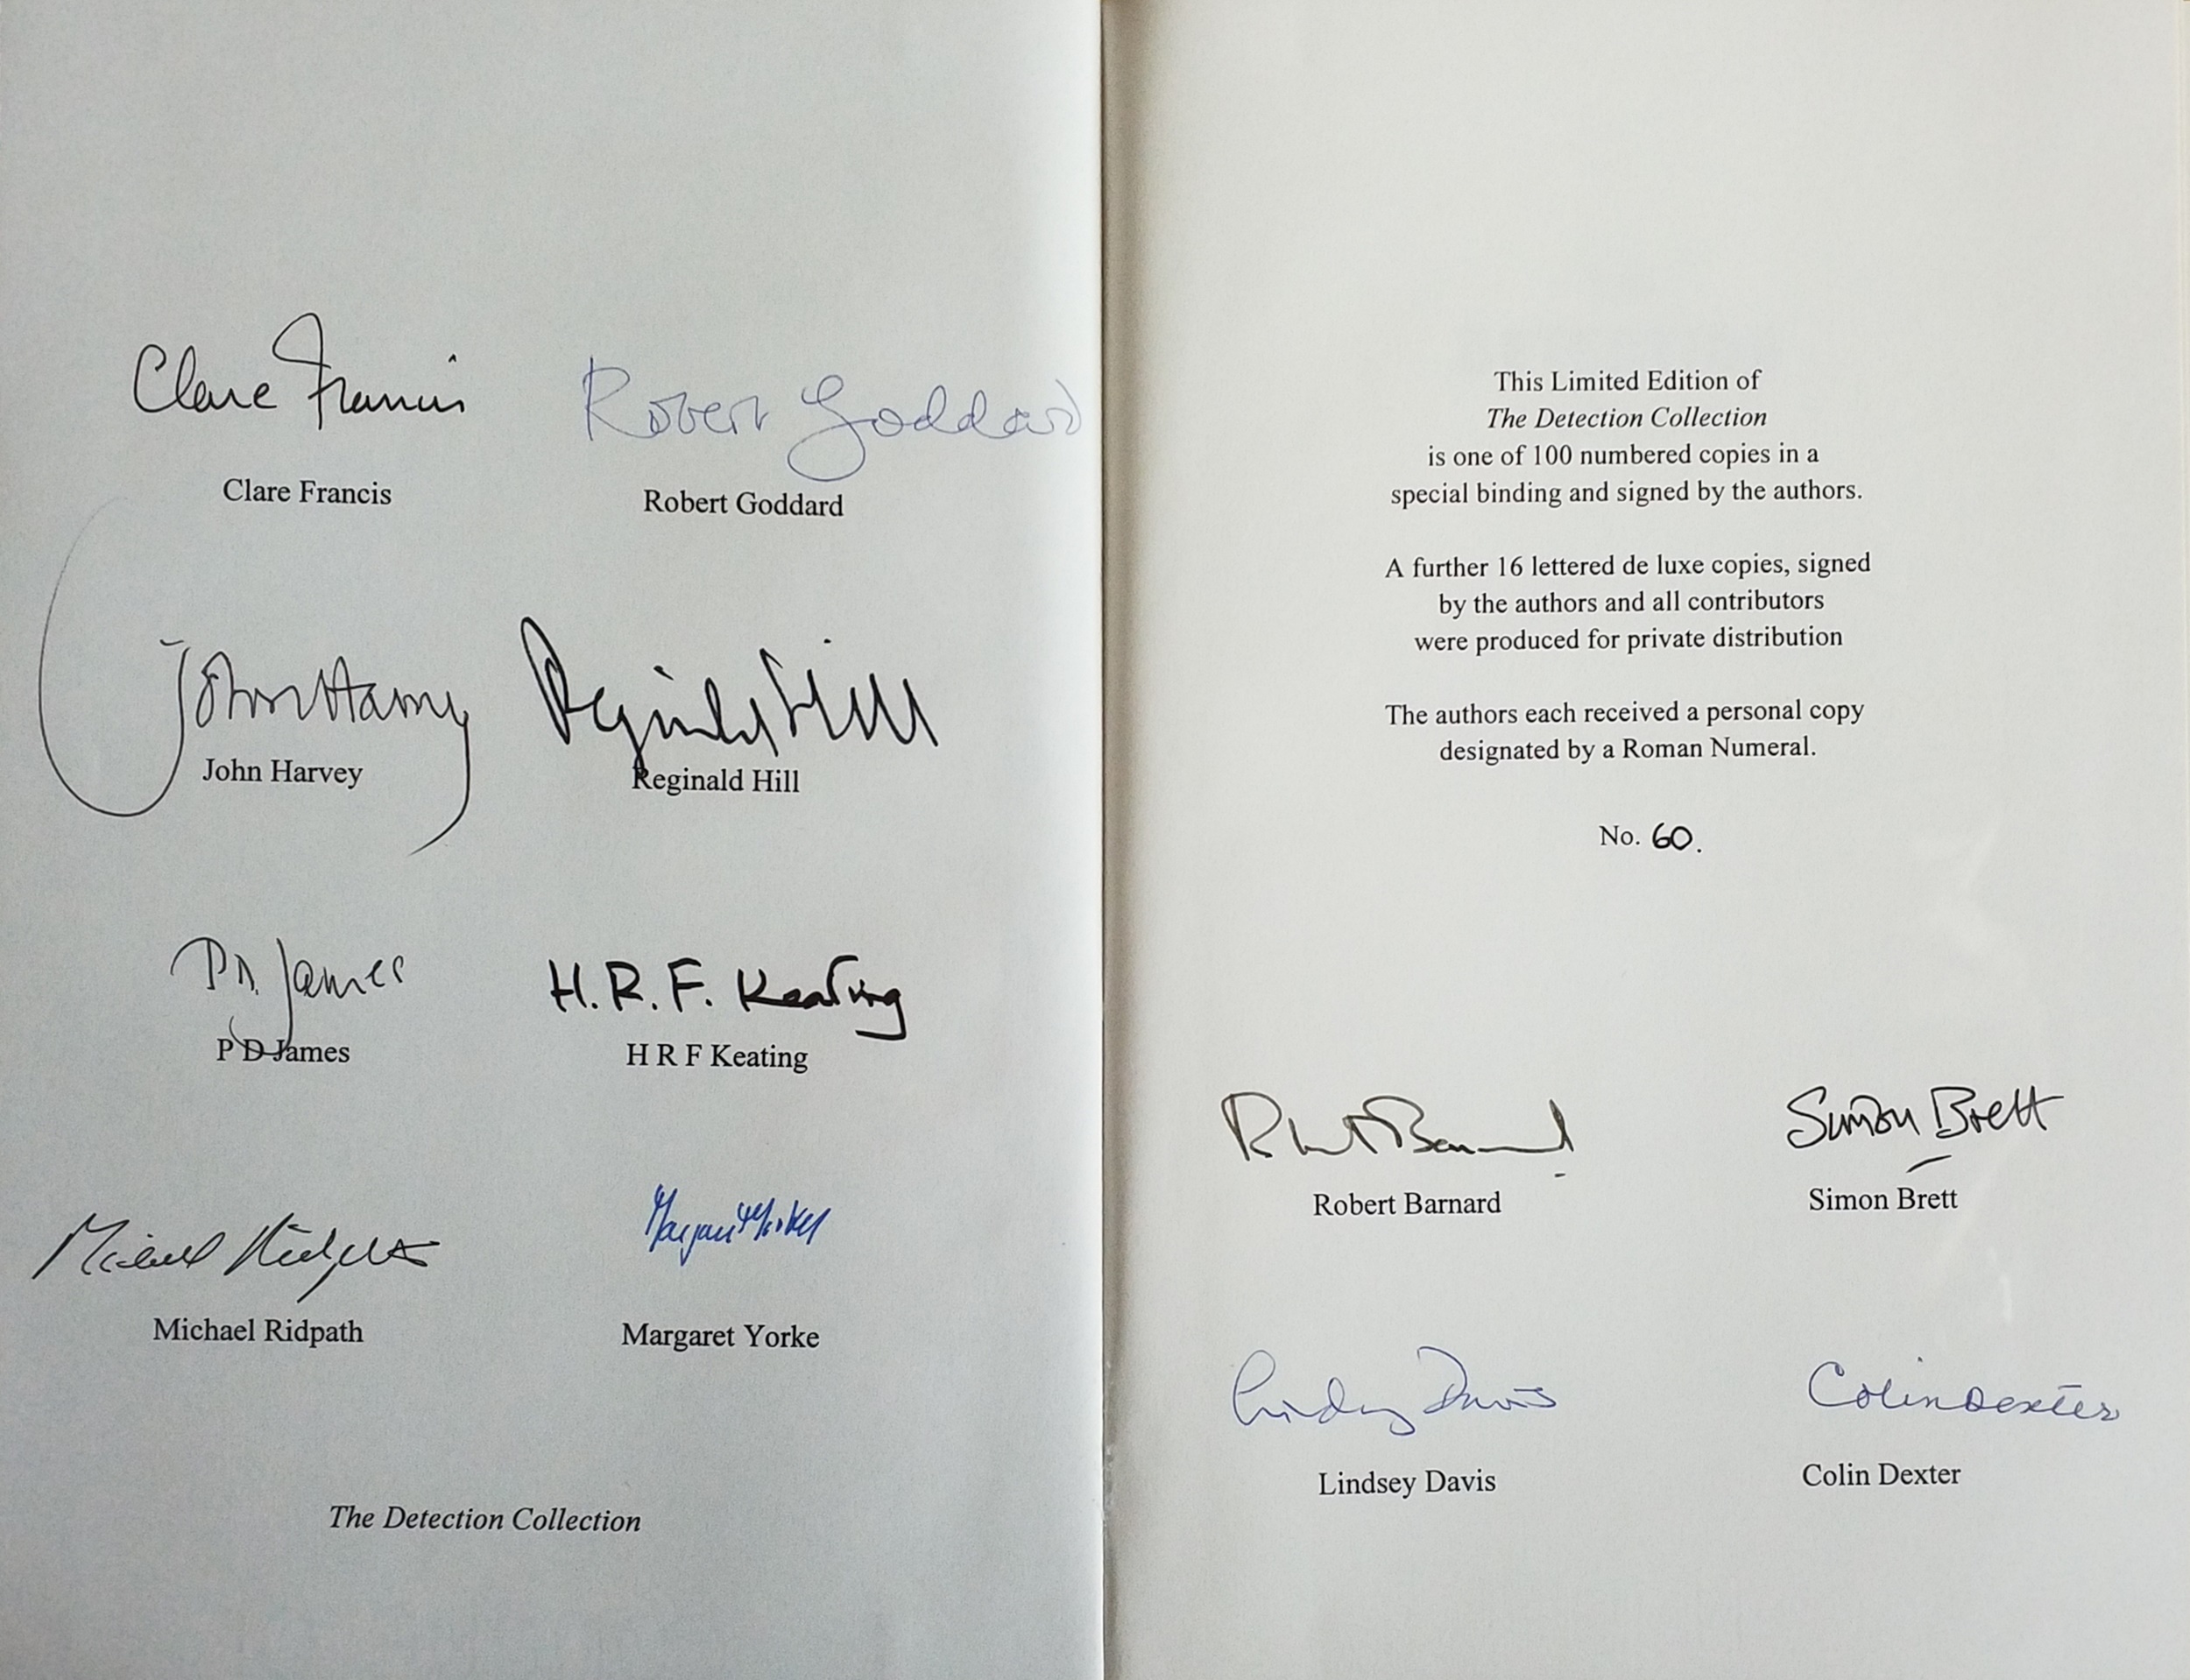 Clare Francis
Robert Goddard
Clare Francis
Robert Goddard
John Harvey
Reginald Hill
John Harvey
Reginald Hill
P.D. James
H.R.F. Keating
P D James
H R F Keating
Michael Ridpath
Margaret Yorke
Michael Ridpath
Margaret Yorke
The Detection Collection
This Limited Edition of
The Detection Collection
is one of 100 numbered copies in a
special binding and signed by the authors.
A further 16 lettered de luxe copies, signed
by the authors and all contributors
were produced for private distribution
The authors each received a personal copy
designated by a Roman Numeral.
No. 60.
Robert Barnard
Simon Brett
Robert Barnard
Simon Brett
Lindsey Davis
Colin Dexter
Lindsey Davis
Colin Dexter